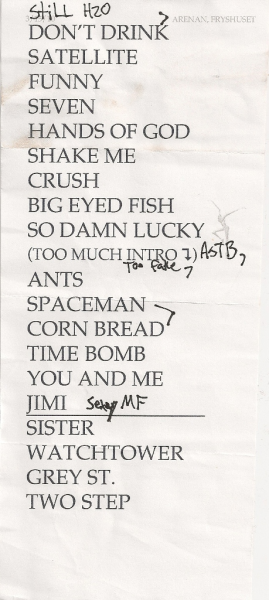 Still H2O
ARENAN, FRYSHUSET
DON'T DRINK
SATELLITE
FUNNY
SEVEN
HANDS OF GOD
SHAKE ME
CRUSH
BIG EYED FISH
SO DAMN LUCKY
(TOO MUCH INTRO ?) ASTB
Too Fake
ANTS
SPACEMAN
CORN BREAD
TIME BOMB
YOU AND ME
JIMI Sexy MF
SISTER
WATCHTOWER
GREY ST.
TWO STEP